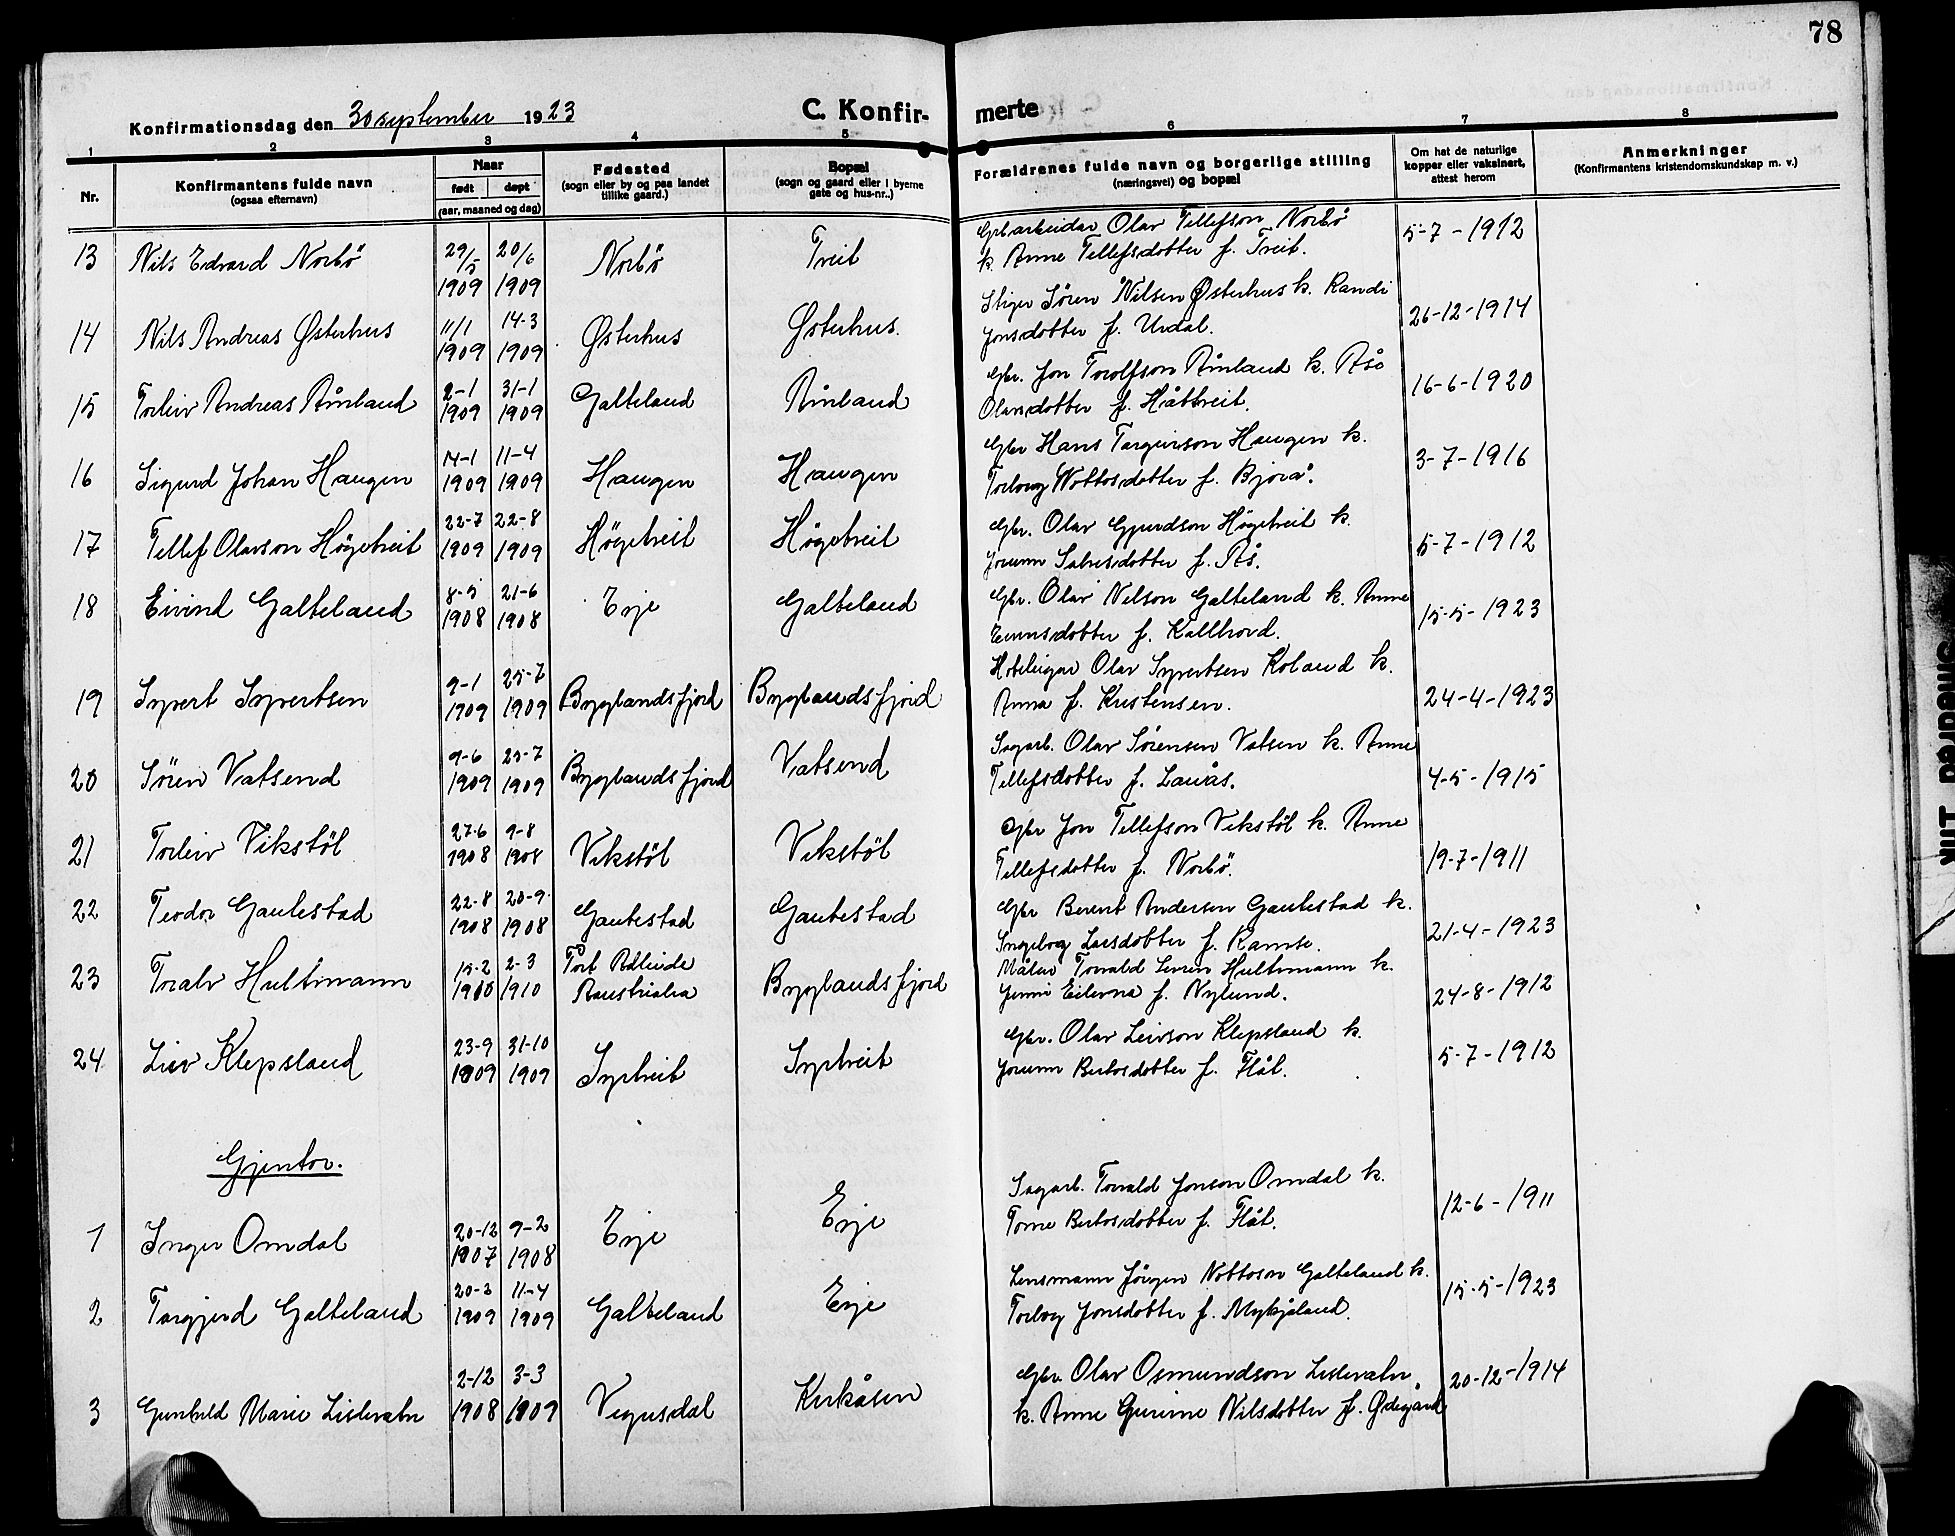 78
Konfirmationsdag den 30 september 1923
C. Konfir-merte
1 2 3 4 5 6 7 8
Nr.
Konfirmantens fulde navn
(ogsaa efternavn)
Naar
født døpt
(aar, maaned og dag)
Fødested
(sogn eller by og paa landet
tillike gaard.)
Bopæl
(sogn og gaard eller i byerne
gate og hus-nr.)
Forældrenes fulde navn og borgerlige stilling
(næringsvei) og bopæl
Om hat de naturlige
kopper eller vaksinert,
attest herom
Anmerkninger
(Konfirmantens kristendomskundskap m. v.)
13 Nils Edvard Norbö 29/5 1909 20/6 1909 Norbö Treit
Gbr.arbeidar Olav Tellefson Norbö
k. Anne Tellefsdotter f. Treit. 5-7-1912
14 Nils Andreas Østerhus 11/1 1909 14-3 1909 Østerhus Østerhus.
Stiger Sören Nilsen Østerhus k. Randi
Jonsdotter f. Urdal. 26-12-1914
15 Torleiv Andreas Åmland 2-1 1909 31-1 1909 Galteland Åmland
Gbr. Jon Torolfson Åmland k. Åse
Olavsdotter f. Håttreit. 16-6-1920
16 Sigurd Johan Haugen 14-1 1909 11-4 1909 Haugen Haugen
Gbr Hans Targeirson Haugen k.
Torborg Nottosdotter f. Bjorå. 3-7-1916
17 Tellef Olavson Högetreit 22-7 1909 22-8 1909 Högetreit Högetreit
Gbr. Olav Gjurdson Högetreit k.
Jorunn Salvesdotter f. Ås. 5-7-1912
18 Eivind Galteland 8-5 1908 21-6 1908 Evje Galteland
Gbr. Olav Nelson Galteland k. Anne
Evensdotter f. Kallhovd. 15-5-1923
19 Syvert Syvertsen 9-1 1909 25-7 1909 Byglandsfjord Byglandsfjord
Hoteleigar Olav Syvertsen Roland k.
Anna f. Kristensen. 24-4-1923
20 Sören Vatsend 9-6 1909 25-7 1909 Byglandsfjord Vatsend
Sagarb. Olav Sörensen Vatsen k. Anne
Tellefsdotter f. Lauås. 4-5-1915
21 Torleiv Vikstöl 27-6 1908 9-8 1908 Vikstöl Vikstöl
Gbr Jon Tellefson Vikstöl k. Anne
Tellefsdotter f. Norbö. 19-7-1911
22 Teodor Gautestad 22-8 1908 20-9 1908 Gautestad Gautestad
Gbr Berent Andersen Gautestad k.
Ingeborg Larsdotter f. Ramse. 21-4-1923
23 Toralv Hultmann 15-2 1910 2-3 1910 Port Adleide
Australia Byglandsfjord
Målar Torvald Hultmann k.
Jenni f. Nylund. 24-8-1912
24 Liev Klepsland 23-9 1909 31-10 1909 Syrtveit Syrtveit
Gbr. Olav Leivson Klepsland k.
Jorunn Bertosdotter f. Flåt. 5-7-1912
Gjentor.
1 Inger Omdal 20-12 1907 9-2 1908 Evje Evje
Sagarb. Torvald Jonson Omdal k.
Torne Bertosdotter f. Flåt. 12-6-1911
2 Targjerd Galteland 20-3 1909 11-4 1909 Galteland Evje
Lensmann Jörgen Nottoson Galteland k.
Torborg Jonsdotter f. Mykjåland. 15-5-1923
3 Gunhild Marie Lislevatn 2-12 1908 3-3 1909 Vegusdal Kirkåsen
Gbr. Olav Osmundson Lislevatn
k. Anne Gurine Nilsdotter f. Ødegård 20-12-1914